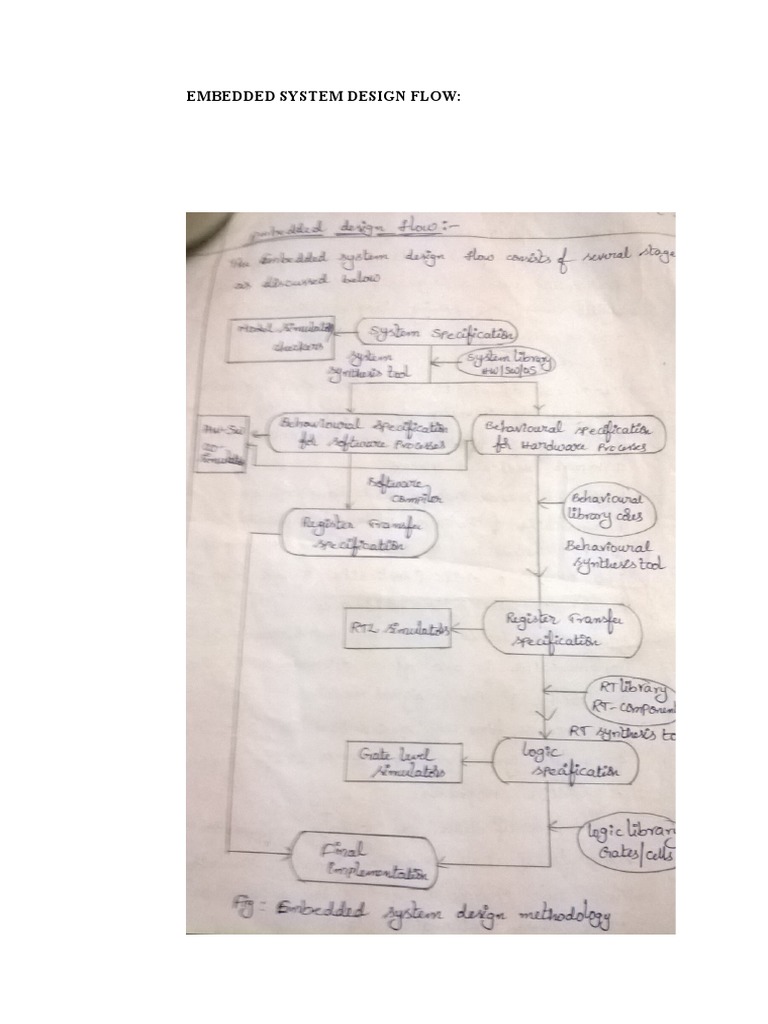 EMBEDDED SYSTEM DESIGN FLOW:
Embedded design flow:-
The Embedded system design flow consists of several stage
as discussed below
Model simulators
checkers
System Specification
System
synthesis tool
System library
HW/SW/OS
Behavioural Specification
for Software Processes
Behavioural Specification
for Hardware Processes
Software
compiler
Behavioural
library
Behavioural
synthesis tool
Register Transfer
specification
RTL simulators
Register Transfer
specification
RT library
RT-component
RT synthesis to
Gate level
simulators
Logic
specification
Logic library
Gates/cells
Final
Implementation
Fig: Embedded system design methodology